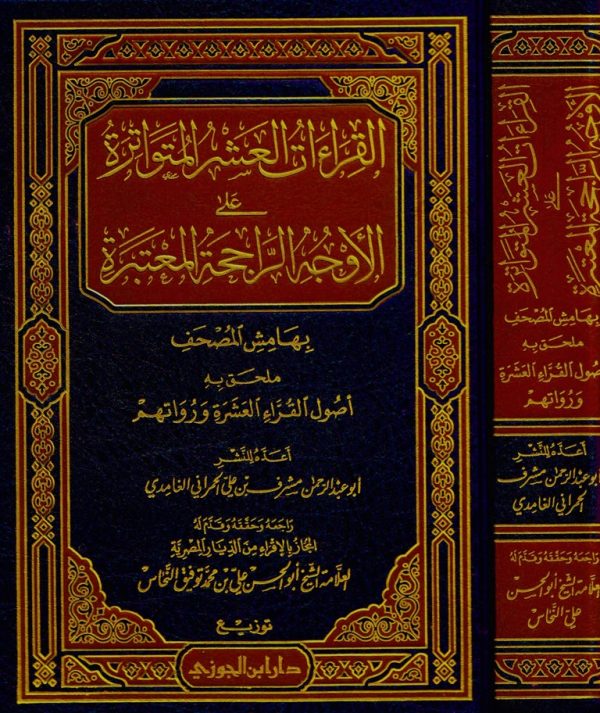 القراءات العشر المتواترة
على
الأوجه الراجحة المعتبرة
بهامش المصحف
ملحق به
أصول القراء العشرة ورواتهم
أعده للنشر
أبو عبد الرحمن مشرف بن علي الحمراني الغامدي
راجعه وحققه وقدم له
المجاز بالإقراء من الديار المصرية
العلامة الشيخ أبو الحسن علي بن محمد توفيق النحاس
توزيع
دار ابن الجوزي
القراءات العشر المتواترة
على
الأوجه الراجحة المعتبرة
بهامش المصحف
ملحق به
أصول القراء العشرة
ورواتهم
أعده للنشر
أبو عبد الرحمن مشرف
الحمراني الغامدي
راجعه وحققه وقدم له
العلامة الشيخ أبو الحسن
علي النحاس